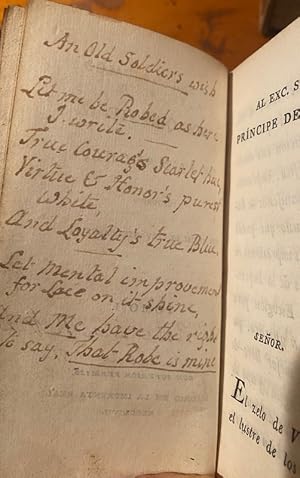 An Old Soldiers wish
Let me be Robed as here
I write.
True Courag's Scarlet hue,
Virtue & Honor's purest
White,
And Loyalty's true Blue,
Let mental improvement
for Lace on it shine,
And Me have the right
To say, That Robe is mine
AL EXC. S
PRÍNCIPE DE
SEÑOR.
El zelo de V
el lustre de los